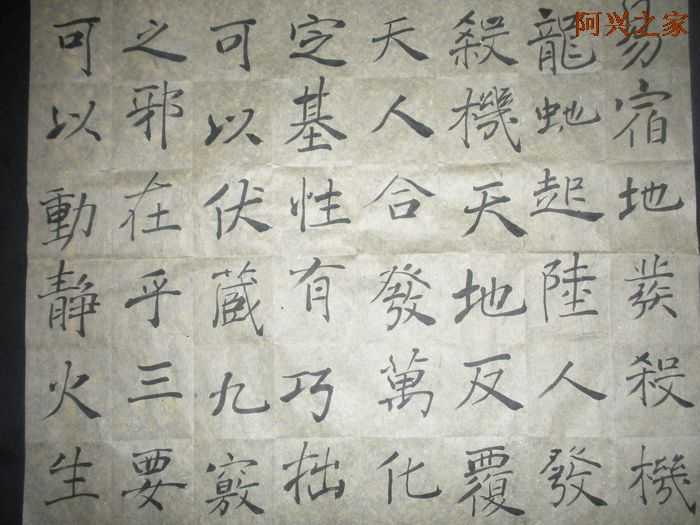 阿兴之家
易宿地發殺機
龍虵起陸人發
殺機天地反覆
天人合發萬化
定基性有巧拙
可以伏藏九竅
之邪在乎三要
可以動靜火生